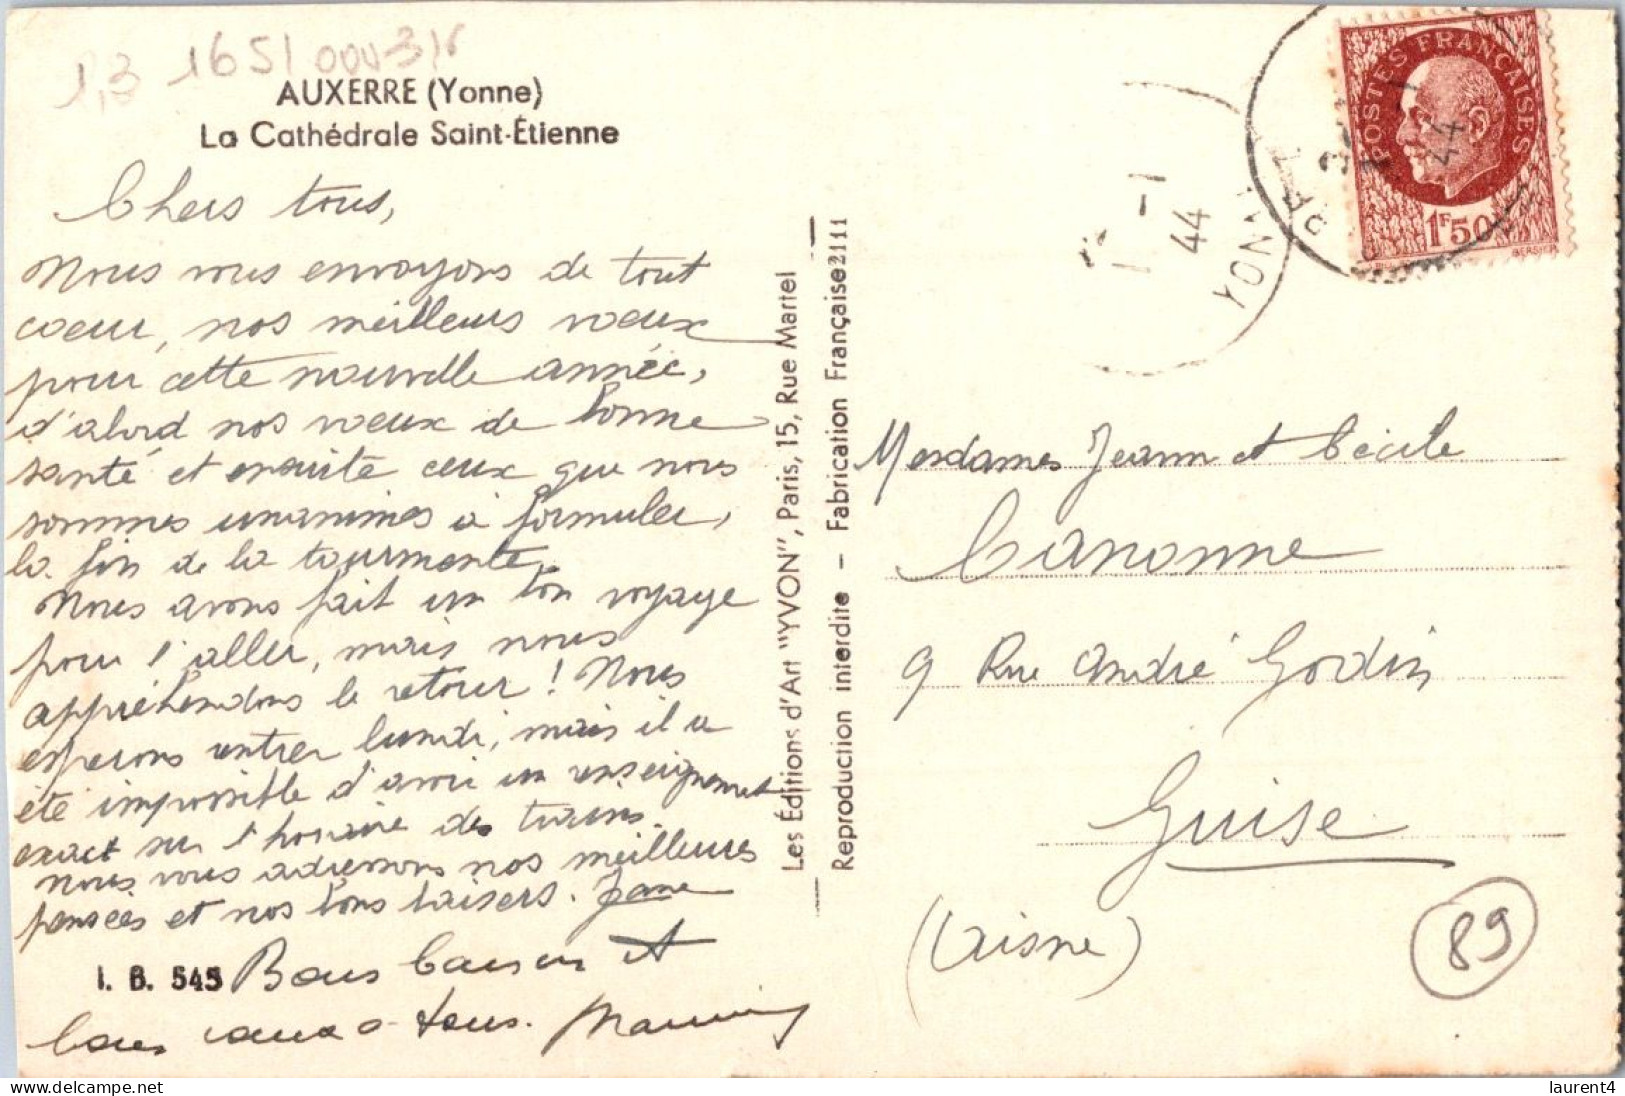 1,3 1651
AUXERRE (Yonne)
La Cathédrale Saint-Étienne
Chers tous,
Nous vous envoyons de tout
coeur, nos meilleurs voeux
pour cette nouvelle année,
d'abord nos voeux de bonne
santé et ensuite ceux que nous
sommes unanimes à formuler,
la fin de la tourmente.
Nous avons fait un bon voyage
pour l'aller, mais nous
appréhendons le retour! Nous
esperons rentrer lundi, mais il a
été impossible d'avoir un renseignement
exact sur l'horaire des trains.
Nous vous adressons nos meilleures
pensées et nos bons baisers. Jane
I. B. 545
Bons baisers et
bons voeux a tous.
Les Éditions d'Art "YVON", Paris, 15, Rue Martel
Reproduction interdite - Fabrication Française 2111
-1
44
YONNE
44
POSTES FRANÇAISES
1F50
BERSIER
Mesdames Jeann et Cécile
Canonne
9 Rue André Godin
Guise
(Aisne)
89
laurent4